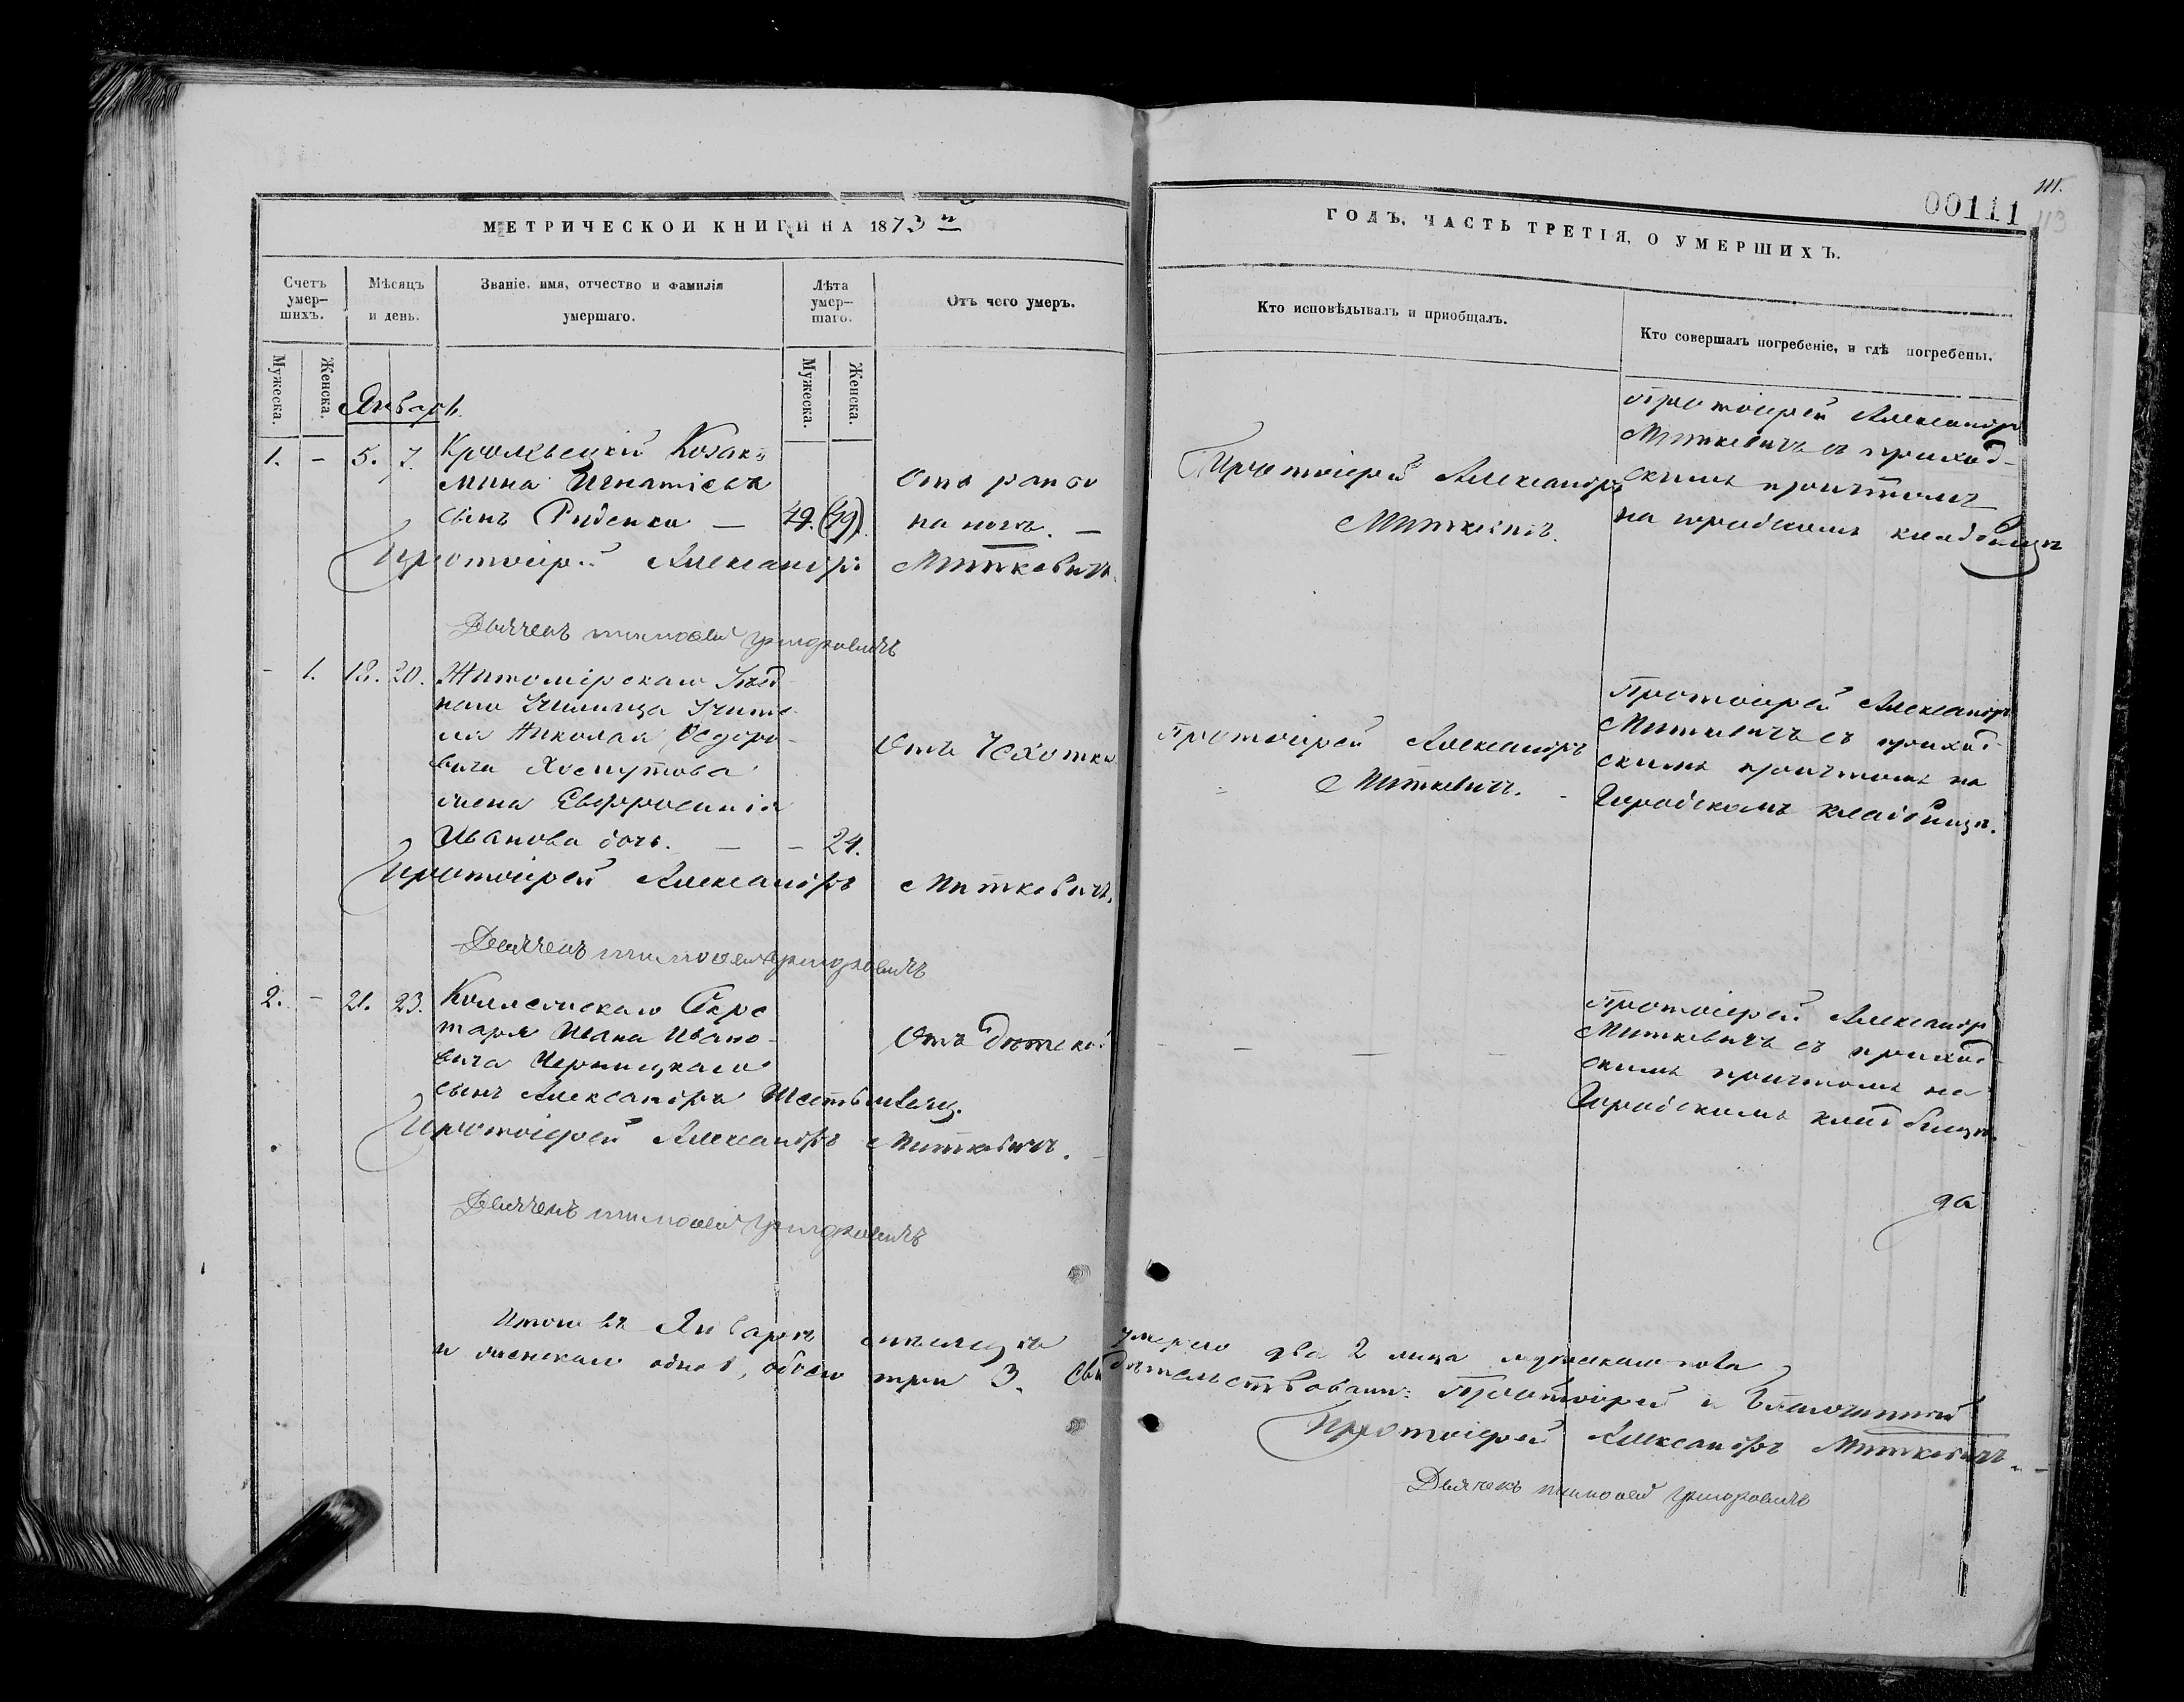 МЕТРИЧЕСКОЙ КНИГИ НА 1873й
ГОДЪ, ЧАСТЬ ТРЕТІЯ, О УМЕРШИХЪ.
00111
111.
113
Счетъ умер-
шихъ.
Мѣсяцъ
и день.
Званіе, имя, отчество и фамилія
умершаго.
Лѣта
умер-
шаго.
Отъ чего умеръ.
Кто исповѣдывалъ и пріобщалъ.
Кто совершалъ погребеніе, и гдѣ погребены.
Мужеска.
Женска.
Мужеска.
Женска.
Январь.
1. - 5. 7. Кролевецкій Козакъ
Мина Игнатіевъ
сынъ Руденко — 49. (49)
Отъ ранъ
на ногѣ. —
Протоіерей Александръ
Миткевичъ.
Протоіерей Александръ
Миткевичъ съ приход-
скимъ причтомъ
на городскомъ кладбищѣ
Протоіерей Александръ Миткевичъ.
Дьячекъ Тимофей Григоровичъ
- 1. 18. 20. Житомірскаго Уѣзд-
наго Училища Учите-
ля Николая Ѳедоро-
вича Хоспутова
жена Евфросинія
Иванова дочь. — - 24.
Отъ Чахотки
Протоіерей Александръ
Миткевичъ. -
Протоіерей Александръ
Миткевичъ съ приход-
скимъ причтомъ на
Городскомъ кладбищѣ.
Протоіерей Александръ Миткевичъ.
Дьячекъ Тимофей Григоровичъ
2. - 21. 23. Коллежскаго Секре-
таря Ивана Ивано-
вича Черницкаго
сынъ Александръ
Отъ дѣтской
— — —
Протоіерей Александръ
Миткевичъ съ приход-
скимъ причтомъ на
Городскомъ кладбищѣ.
Протоіерей Александръ Миткевичъ.
Дьячекъ Тимофей Григоровичъ
Итого въ Январѣ мѣсяцѣ умерло два 2 лица мужескаго пола
и женскаго одно 1, обоего три 3. Свидѣтельствовали: Протоіерей и Благочинный
Протоіерей Александръ Миткевичъ. -
Дьячекъ Тимофей Григоровичъ